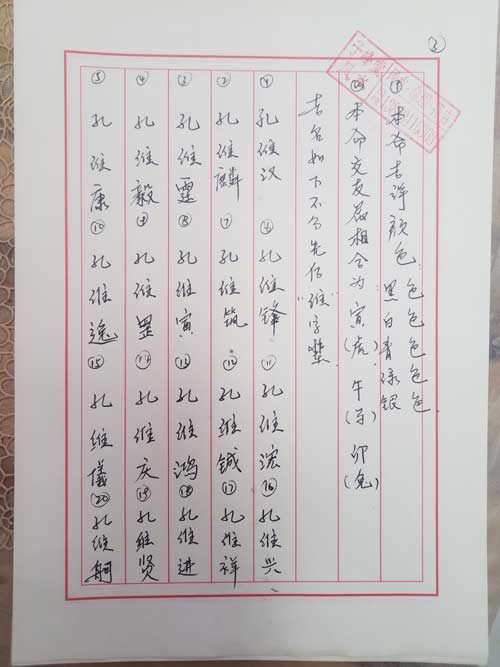 ③
⑨本命吉祥颜色:黑色 白色 青色 绿色 银色.
⑩本命交友属相合为寅(虎)午(马)卯(兔)
吉名如下不分先后"维"字辈
①孔维汉 ⑥孔维锋 ⑪孔维 ⑯孔维兴
②孔维麟 ⑦孔维筑 ⑫孔维铖 ⑰孔维祥
③孔维霆 ⑧孔维寅 ⑬孔维鸿 ⑱孔维进
④孔维毅 ⑨孔维罡 ⑭孔维庆 ⑲孔维贤
⑤孔维康 ⑩孔维逸 ⑮孔维儀 ⑳孔维舸